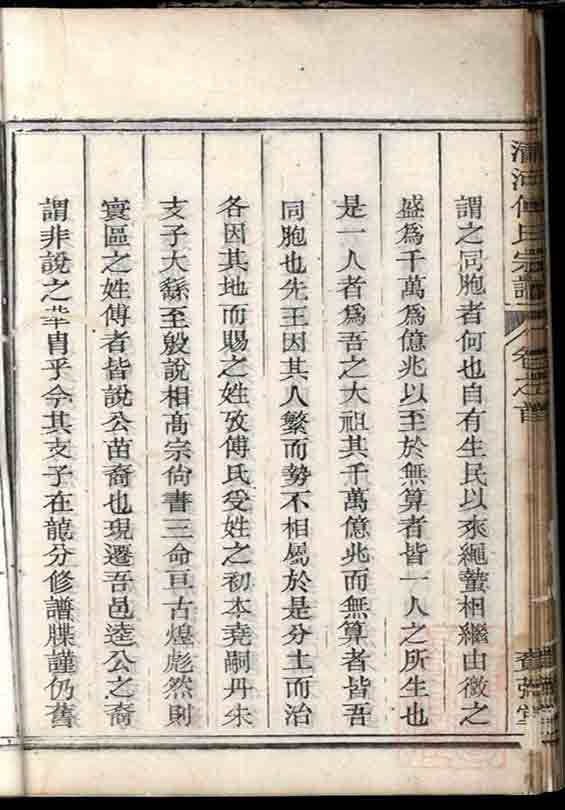 清河傅氏宗譜 卷之首
謂之同胞者何也自有生民以來繩蟄相繼由微之
盛為千萬為億兆以至於無算者皆一人之所生也
是一人者為吾之大祖其千萬億兆而無算者皆吾
同胞也先王因其人繁而勢不相屬於是分土而治
各因其地而賜之姓攷傅氏受姓之初本堯嗣丹朱
支子大繇至殷說相高宗尚書三命亘古煌彪然則
寰區之姓傅者皆說公苗裔也現遷吾邑逵公之裔
謂非說之華胄乎今其支子在龍分修譜牒謹仍舊